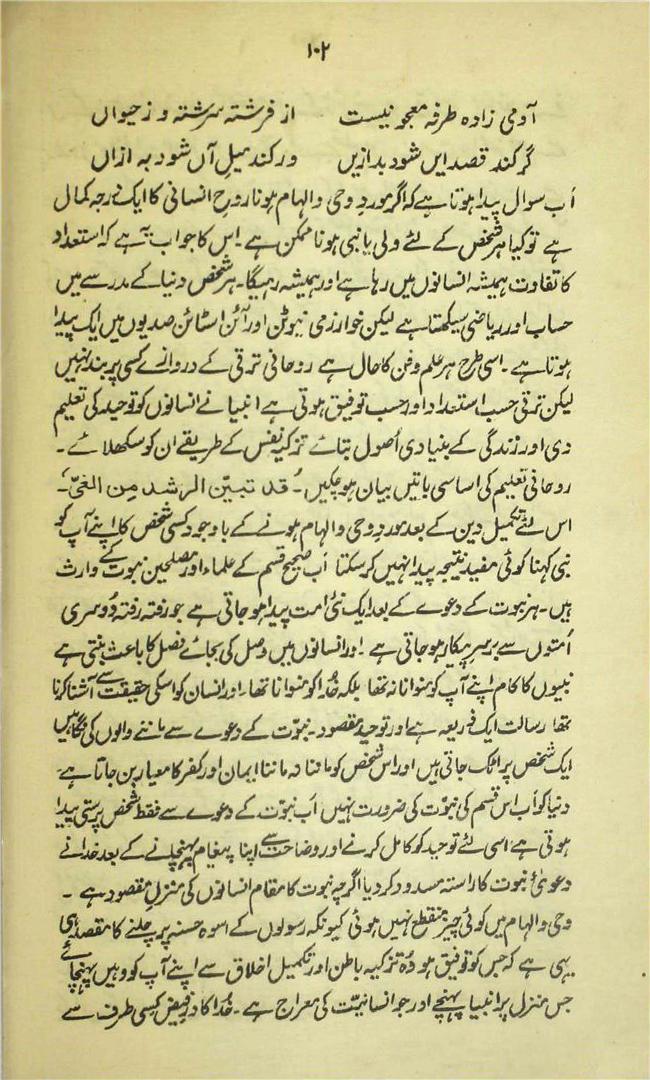 ۱۰۲
آدمی زادہ طرفہ معجونیست از فرشتہ سرشتہ و ز حیواں
گر کند قصد ایں شود بد ازیں ور کند میل آں شود بہ ازاں
اَب سوال پیدا ہوتا ہے کہ اگر موردِ وحی و الہام ہونا روحِ انسانی کا ایک درجہ کمال
ہے تو کیا ہر شخص کے لئے ولی یا نبی ہونا ممکن ہے ۔ اس کا جواب یہ ہے کہ استعداد
کا تفاوت ہمیشہ انسانوں میں رہا ہے اور ہمیشہ رہیگا ۔ ہر شخص دنیا کے مدرسے میں
حساب اور ریاضی سیکھتا ہے لیکن خوارزمی نیوٹن اور آئن اسٹائن صدیوں میں ایک پیدا
ہوتا ہے ۔ اسی طرح ہر علم و فن کا حال ہے روحانی ترقی کے دروازے کسی پر بند نہیں
لیکن ترقی حسب استعداد اور حسب توفیق ہوتی ہے انبیا نے انسانوں کو توحید کی تعلیم
دی اور زندگی کے بنیادی اُصول بتائے تزکیہ نفس کے طریقے ان کو سکھلائے ۔
روحانی تعلیم کی اساسی باتیں بیان ہو چکیں ۔ قد تبیّن الرشد من الغیّ ۔
اس لئے تکمیل دین کے بعد موردِ وحی و الہام ہونے کے باوجود کسی شخص کا اپنے آپ کو
نبی کہنا کوئی مفید نتیجہ پیدا نہیں کر سکتا اَب صحیح قسم کے علماء اور مصلحین نبوت کے وارث
ہیں ۔ ہر نبوت کے دعوے کے بعد ایک نئی امت پیدا ہو جاتی ہے جو رفتہ رفتہ دوسری
اُمتوں سے برسرِ پیکار ہو جاتی ہے ۔ اور انسانوں میں وصل کی بجائے فصل کا باعث بنتی ہے
نبیوں کا کام اپنے آپ کو منوانا نہ تھا بلکہ خُدا کو منوانا تھا ۔ اور انسان کو اسکی حقیقت سے آشنا کرنا
تھا رسالت ایک ذریعہ ہے اور توحید مقصود ۔ نبوّت کے دعوے سے ماننے والوں کی نگاہیں
ایک شخص پر اٹک جاتی ہیں اور اس شخص کو ماننا نہ ماننا ایمان اور کفر کا معیار بن جاتا ہے ۔
دنیا کو اَب اس قسم کی نبوّت کی ضرورت نہیں اَب نبوّت کے دعوے سے فقط شخص پرستی پیدا
ہوتی ہے اسی لئے توحید کو کامل کرنے اور وضاحت سے اپنا پیغام پہنچانے کے بعد خدا نے
دعویٰ نبوت کا راستہ مسدود کر دیا اگرچہ نبوت کا مقام انسانوں کی منزلِ مقصود ہے ۔
وحی و الہام میں کوئی چیز منقطع نہیں ہوئی کیونکہ رسولوں کے اسوہ حسنہ پر چلنے کا مقصد ہی
یہی ہے کہ جس کو توفیق ہو وہ تزکیہ باطن اور تکمیل اخلاق سے اپنے آپ کو وہیں پہنچائے
جس منزل پر انبیا پہنچے اور جو انسانیت کی معراج ہے ۔ خُدا کا درِ فیض کسی طرف سے